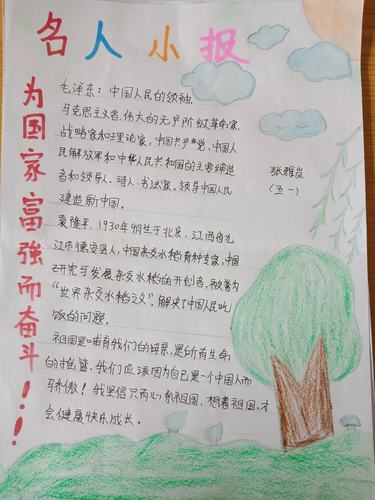 名人小报
为国家富强而奋斗！！！
毛泽东：中国人民的领袖，
马克思主义者，伟大的无产阶级革命家，
战略家和理论家，中国共产党，中国人
民解放军和中华人民共和国的主要缔造
者和领导人，诗人，书法家，领导中国人民
建造新中国。
张雅岚
（五一）
袁隆平，1930年9月生于北京，江西省九
江市德安县人，中国杂交水稻育种专家，中国
研究与发展杂交水稻的开创者，被誉为
“世界杂交水稻之父”，解决了中国人民吃
饭的问题。
祖国是哺育我们的母亲，是所有生命
的摇篮，我们应该因为自己是一个中国人而
骄傲！我坚信只有心系祖国，想着祖国，才
会健康快乐成长。